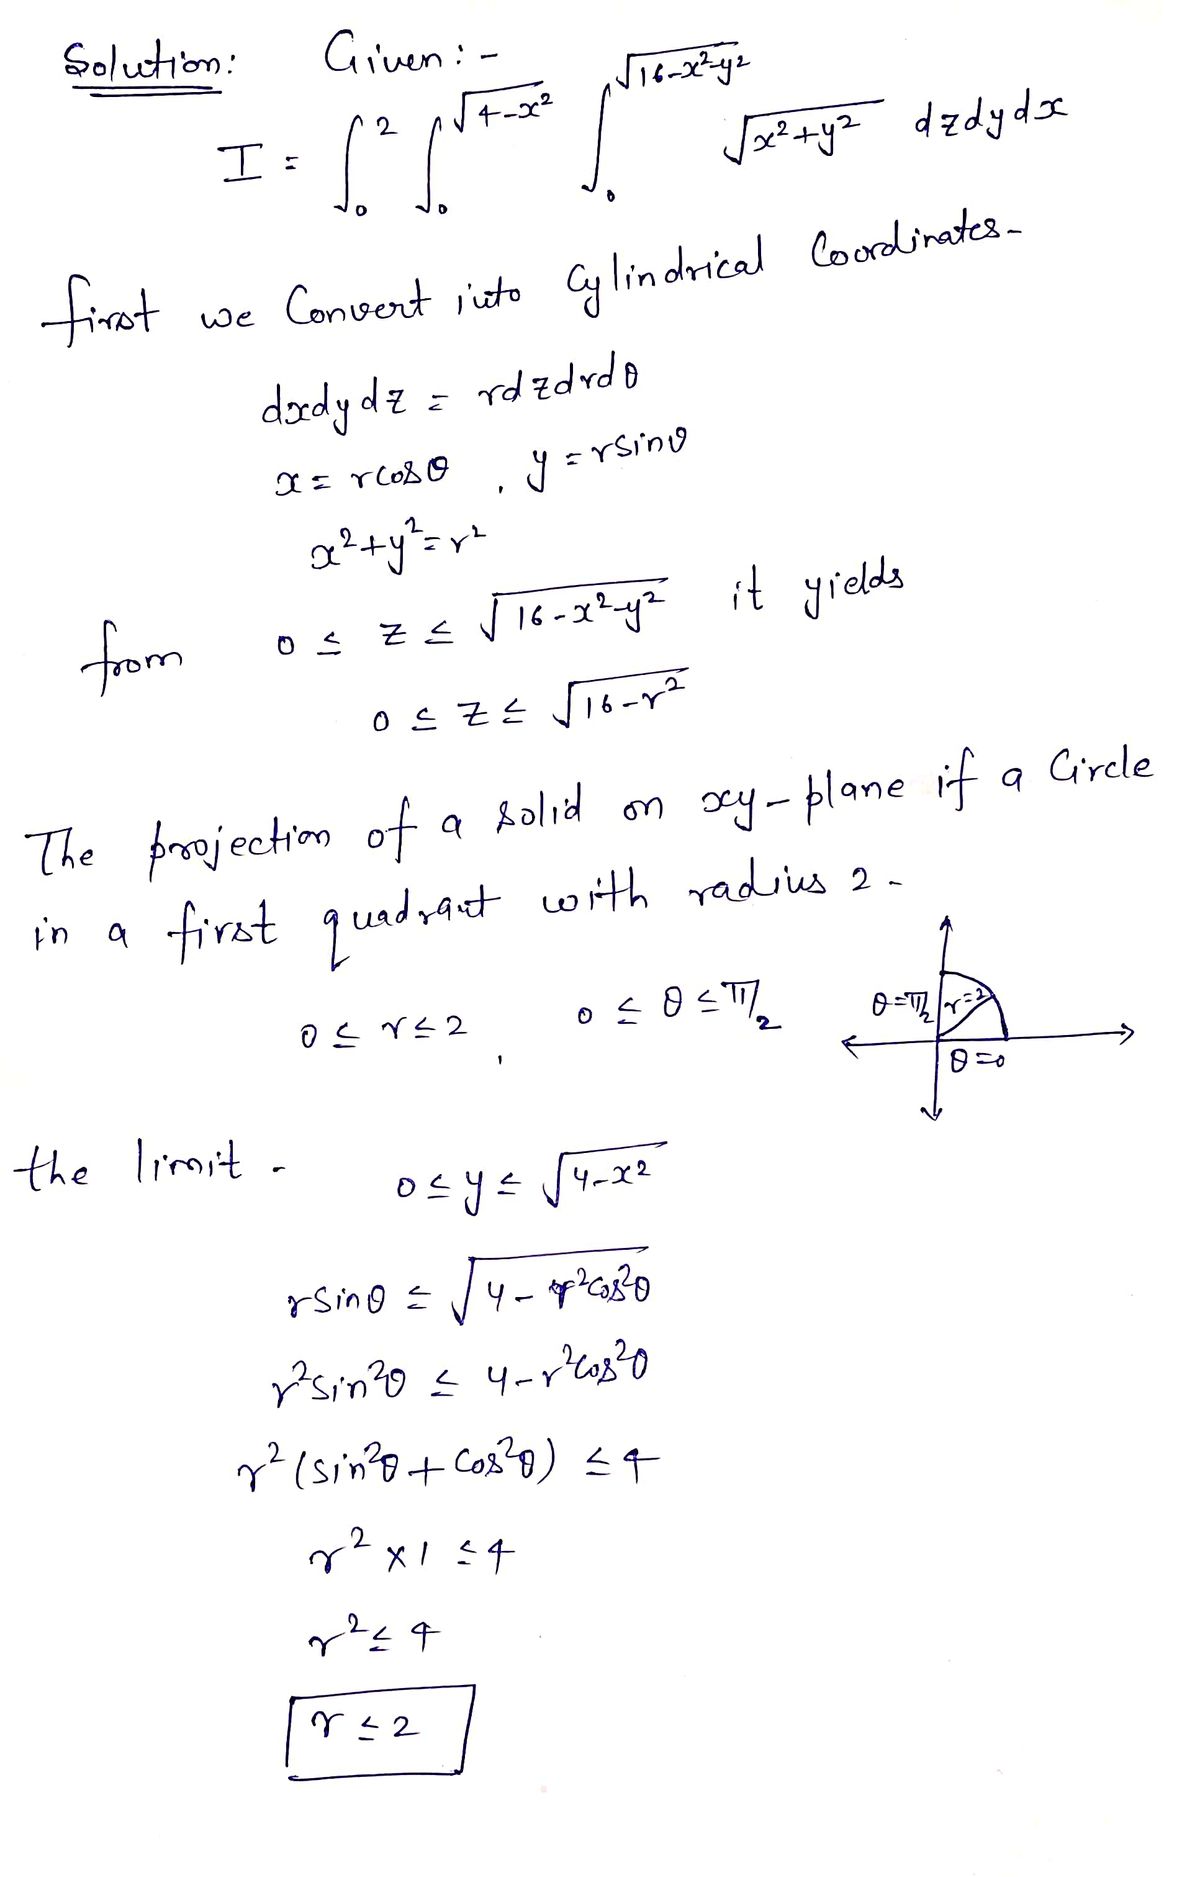 Solution: Given:-
I = ∫₀² ∫₀^√(4-x²) ∫₀^√(16-x²-y²) √(x²+y²) dzdydx
first we Convert into Cylindrical Coordinates-
dxdydz = rdzdrdθ
x = rcosθ , y = rsinθ
x²+y²=r²
from 0 ≤ z ≤ √(16-x²-y²) it yields
0 ≤ z ≤ √(16-r²)
The projection of a solid on xy-plane if a Circle
in a first quadrant with radius 2-
0 ≤ r ≤ 2 , 0 ≤ θ ≤ π/2
θ=π/2 r=2
θ=0
the limit - 0 ≤ y ≤ √(4-x²)
rsinθ ≤ √(4-r²cos²θ)
r²sin²θ ≤ 4-r²cos²θ
r²(sin²θ+cos²θ) ≤ 4
r² x 1 ≤ 4
r² ≤ 4
r ≤ 2